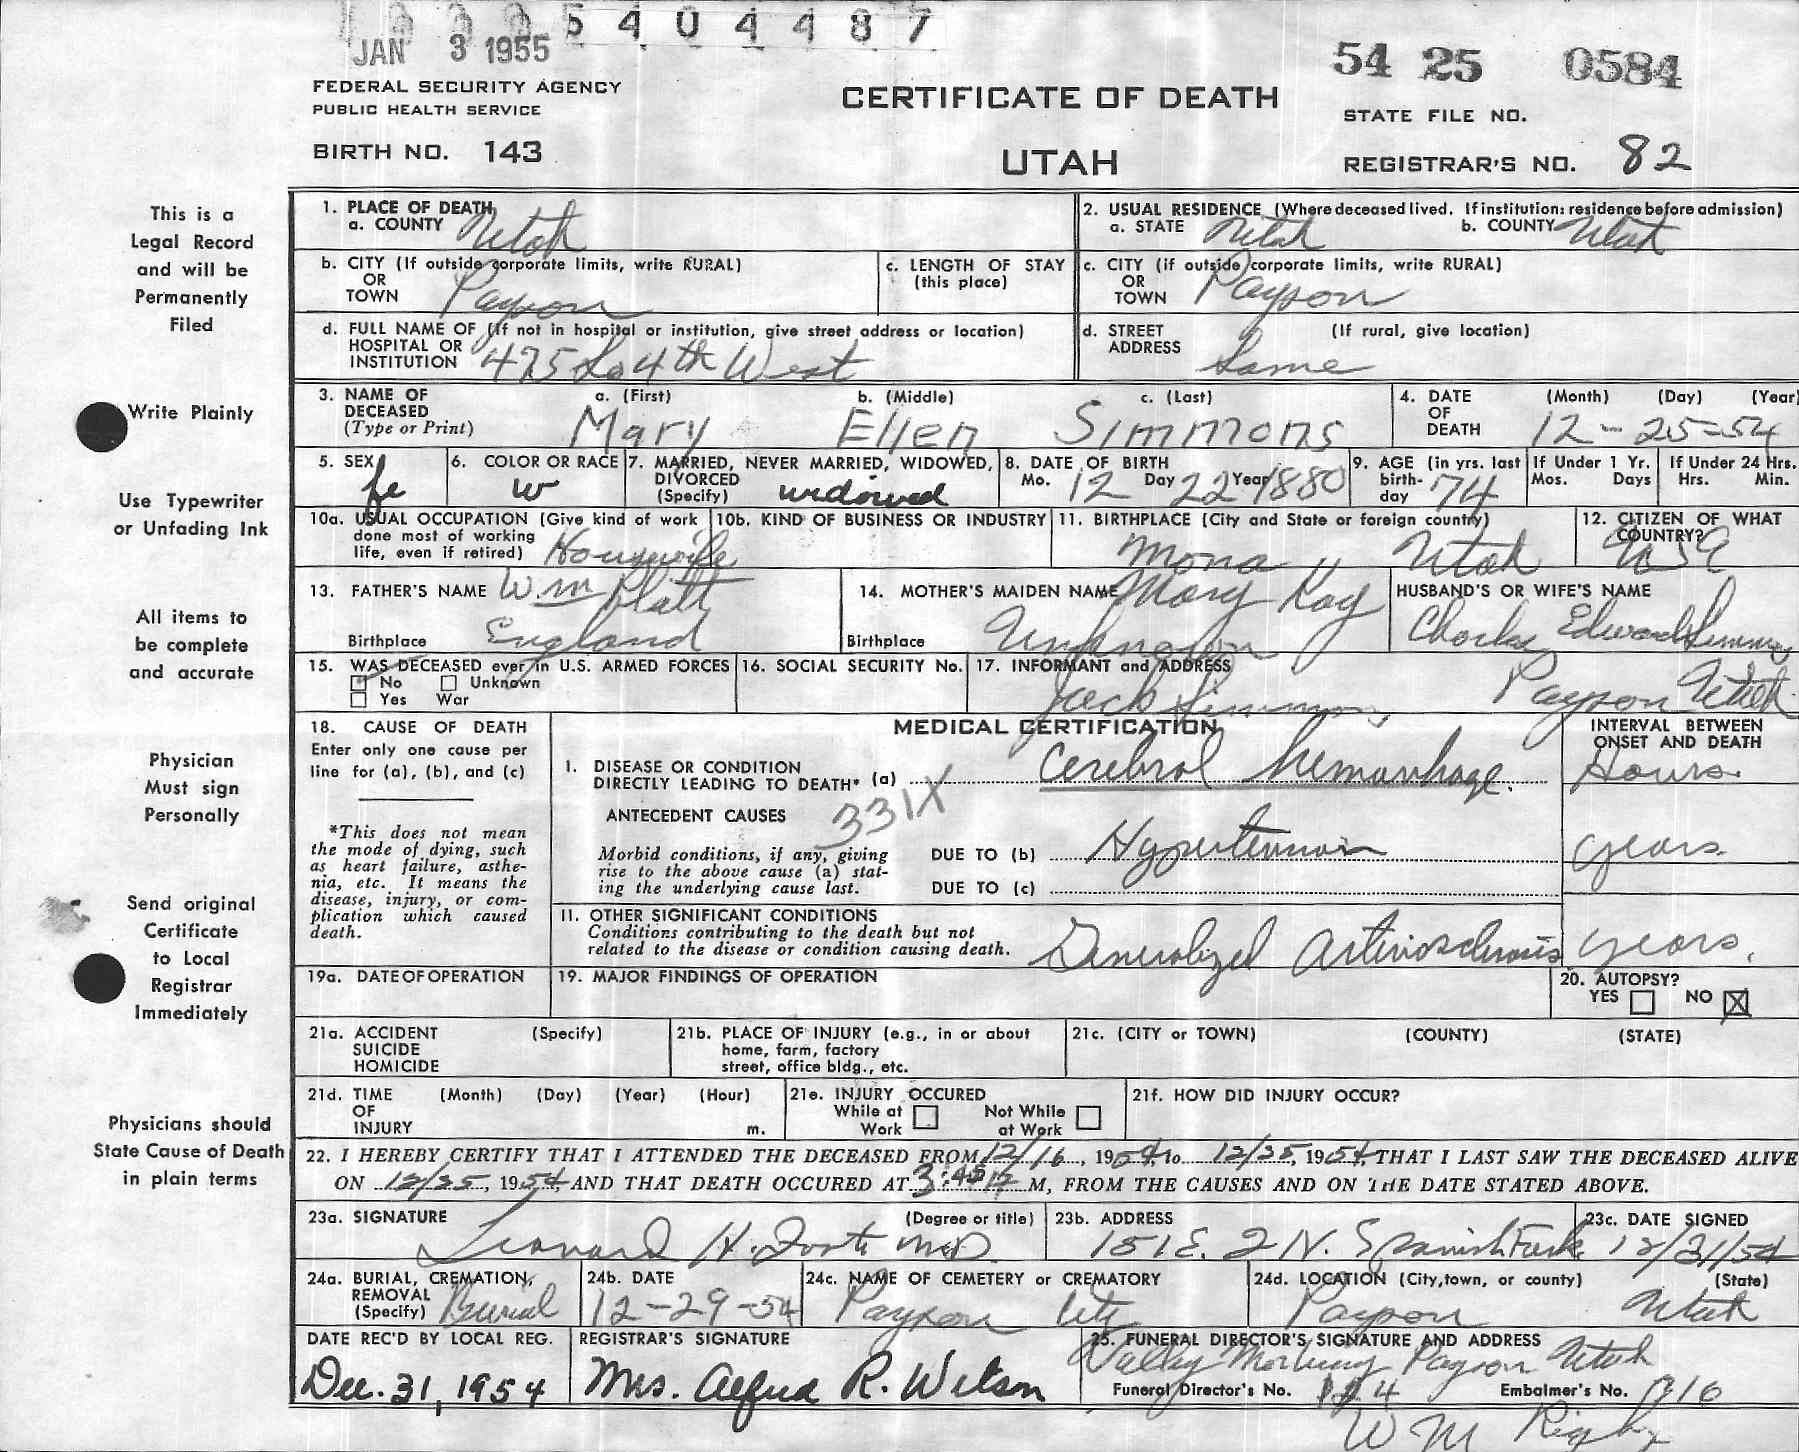 5 4 0 4 4 8 7
JAN 3 1955
54 25 0584
FEDERAL SECURITY AGENCY
PUBLIC HEALTH SERVICE
CERTIFICATE OF DEATH
STATE FILE NO.
BIRTH NO. 143
UTAH
REGISTRAR'S NO. 82
This is a
Legal Record
and will be
Permanently
Filed
Write Plainly
Use Typewriter
or Unfading Ink
All items to
be complete
and accurate
Physician
Must sign
Personally
Send original
Certificate
to Local
Registrar
Immediately
Physicians should
State Cause of Death
in plain terms
1. PLACE OF DEATH
a. COUNTY Utah
2. USUAL RESIDENCE (Where deceased lived. If institution: residence before admission)
a. STATE Utah b. COUNTY Utah
b. CITY (If outside corporate limits, write RURAL)
OR
TOWN Payson
c. LENGTH OF STAY
(this place)
c. CITY (if outside corporate limits, write RURAL)
OR
TOWN Payson
d. FULL NAME OF (If not in hospital or institution, give street address or location)
HOSPITAL OR
INSTITUTION 475 So 4th West
d. STREET (If rural, give location)
ADDRESS Same
3. NAME OF a. (First) b. (Middle) c. (Last)
DECEASED
(Type or Print) Mary Ellen Simmons
4. DATE (Month) (Day) (Year)
OF
DEATH 12-25-54
5. SEX
fe
6. COLOR OR RACE
W
7. MARRIED, NEVER MARRIED, WIDOWED,
DIVORCED
(Specify) widowed
8. DATE OF BIRTH
Mo. 12 Day 22 Year 1880
9. AGE (in yrs. last
birth-
day 74
If Under 1 Yr.
Mos. Days
If Under 24 Hrs.
Hrs. Min.
10a. USUAL OCCUPATION (Give kind of work
done most of working
life, even if retired) Housewife
10b. KIND OF BUSINESS OR INDUSTRY
11. BIRTHPLACE (City and State or foreign country)
Mona Utah
12. CITIZEN OF WHAT
COUNTRY?
USA
13. FATHER'S NAME Wm Platt
Birthplace England
14. MOTHER'S MAIDEN NAME Mary Kay
Birthplace Unknown
HUSBAND'S OR WIFE'S NAME
Charles Edward Simmons
15. WAS DECEASED ever in U.S. ARMED FORCES
No Unknown
Yes War
16. SOCIAL SECURITY No.
17. INFORMANT and ADDRESS
Jack Simmons, Payson Utah
18. CAUSE OF DEATH
Enter only one cause per
line for (a), (b), and (c)
*This does not mean
the mode of dying, such
as heart failure, asthe-
nia, etc. It means the
disease, injury, or com-
plication which caused
death.
MEDICAL CERTIFICATION
INTERVAL BETWEEN
ONSET AND DEATH
I. DISEASE OR CONDITION
DIRECTLY LEADING TO DEATH* (a) Cerebral hemorrhage. Hours.
331X
ANTECEDENT CAUSES
Morbid conditions, if any, giving
rise to the above cause (a) stat-
ing the underlying cause last.
DUE TO (b) Hypertension years.
DUE TO (c)
II. OTHER SIGNIFICANT CONDITIONS
Conditions contributing to the death but not
related to the disease or condition causing death.
Generalized arteriosclerosis years.
19a. DATE OF OPERATION
19. MAJOR FINDINGS OF OPERATION
20. AUTOPSY?
YES NO X
21a. ACCIDENT (Specify)
SUICIDE
HOMICIDE
21b. PLACE OF INJURY (e.g., in or about
home, farm, factory
street, office bldg., etc.
21c. (CITY or TOWN) (COUNTY) (STATE)
21d. TIME (Month) (Day) (Year) (Hour)
OF
INJURY m.
21e. INJURY OCCURED
While at Work Not While at Work
21f. HOW DID INJURY OCCUR?
22. I HEREBY CERTIFY THAT I ATTENDED THE DECEASED FROM 12/16, 1954, to 12/25, 1954, THAT I LAST SAW THE DECEASED ALIVE
ON 12/25, 1954 AND THAT DEATH OCCURED AT 3:45 P M, FROM THE CAUSES AND ON THE DATE STATED ABOVE.
23a. SIGNATURE (Degree or title)
Leonard H. Foote MD
23b. ADDRESS
151 E. 2 N. Spanish Fork
23c. DATE SIGNED
12/31/54
24a. BURIAL, CREMATION,
REMOVAL
(Specify) Burial
24b. DATE
12-29-54
24c. NAME OF CEMETERY or CREMATORY
Payson City
24d. LOCATION (City, town, or county) (State)
Payson Utah
DATE REC'D BY LOCAL REG.
Dec. 31, 1954
REGISTRAR'S SIGNATURE
Mrs. Alfred R. Wilson
25. FUNERAL DIRECTOR'S SIGNATURE AND ADDRESS
Valley Mortuary Payson Utah
Funeral Director's No. Embalmer's No.
W M Rigby